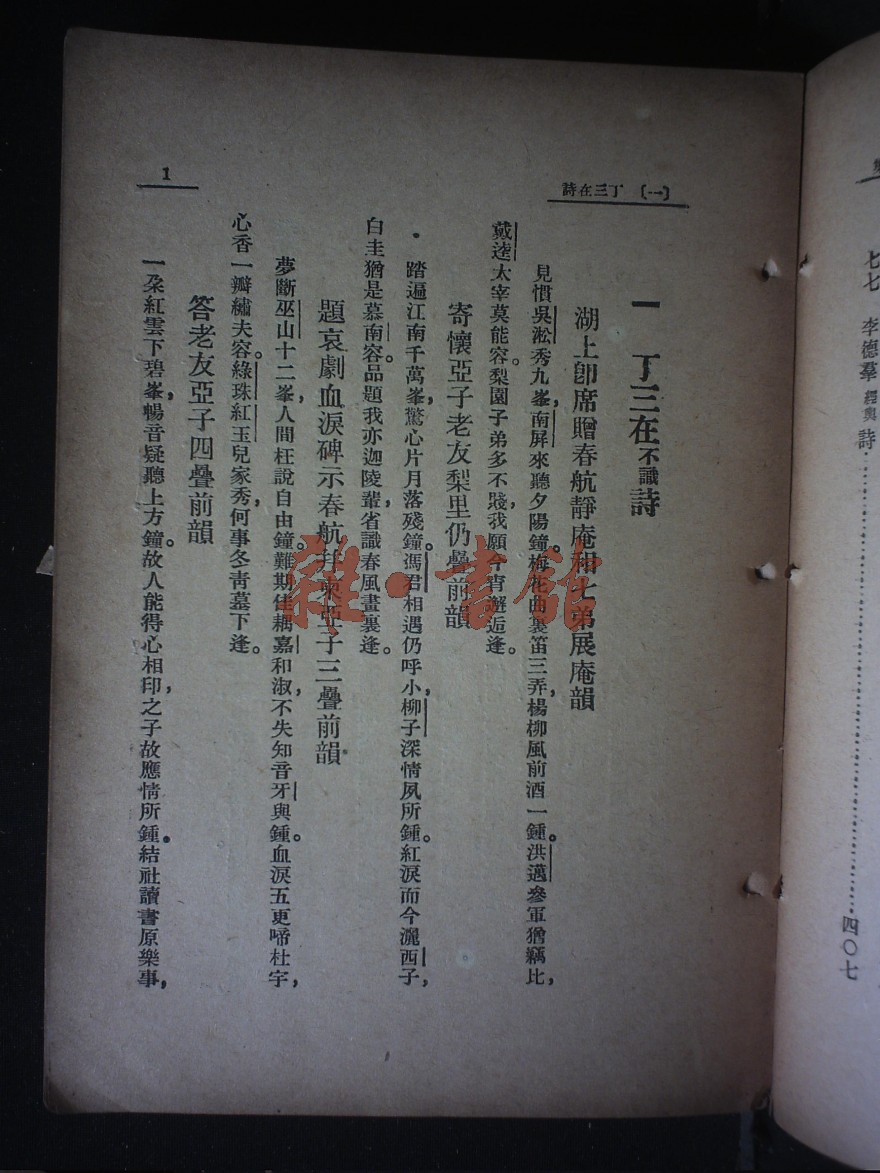 〔一〕 丁三在詩
一 丁三在不識詩
湖上卽席贈春航靜庵和七弟展庵韻
見慣吳淞秀九峯，南屏來聽夕陽鐘。梅花曲裏笛三弄，楊柳風前酒一鍾。洪邁參軍猶竊比，
戴逵太宰莫能容。梨園子弟多不賤，我願今宵邂逅逢。
寄懷亞子老友梨里仍疊前韻
踏遍江南千萬峯，驚心片月落殘鐘。馮君相遇仍呼小，柳子深情夙所鍾。紅淚而今灑西子，
白圭猶是慕南容。品題我亦迦陵輩，省識春風畫裏逢。
題哀劇血淚碑示春航幷柬亞子三疊前韻
夢斷巫山十二峯，人間枉說自由鐘。難期佳耦嘉和淑，不失知音牙與鍾。血淚五更啼杜宇，
心香一瓣繡夫容。綠珠紅玉兒家秀，何事冬靑墓下逢。
答老友亞子四疊前韻
一朶紅雲下碧峯，暢音疑聽上方鐘。故人能得心相印，之子故應情所鍾。結社讀書原樂事，
1
七七 李德羣經輿詩 四〇七
雜·書館